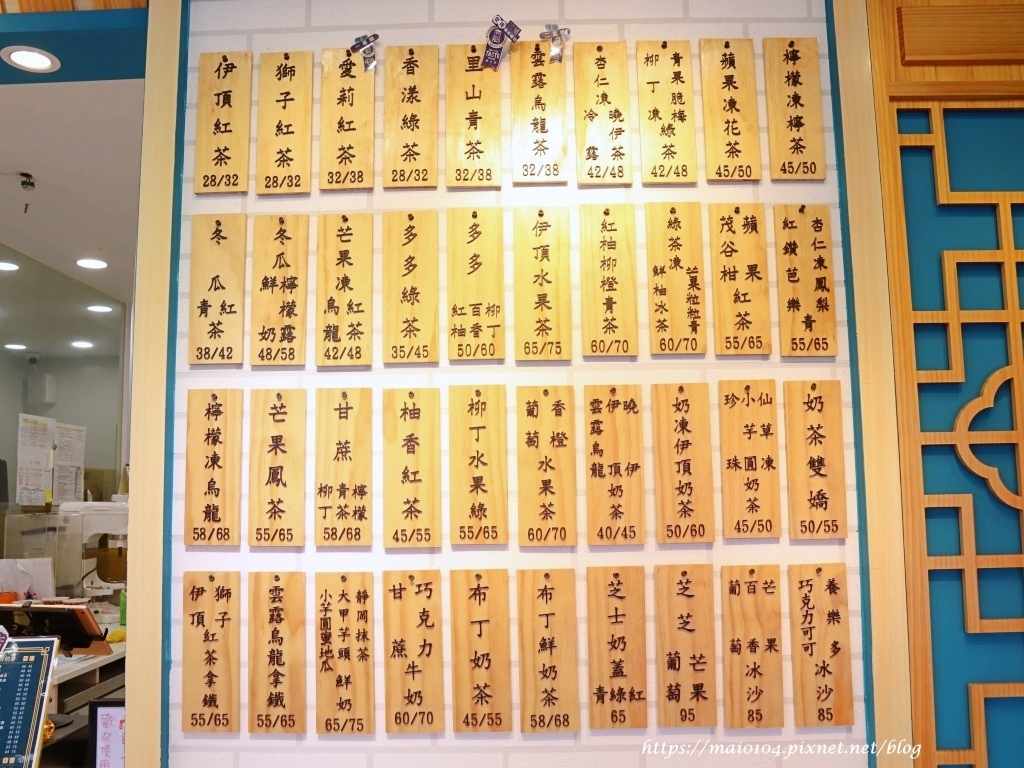 伊頂紅茶
28/32
獅子紅茶
28/32
愛莉紅茶
32/38
香漾綠茶
28/32
里山青茶
32/38
雲露烏龍茶
32/38
杏仁凍
曉伊茶
冷露
42/48
青果脆梅
柳丁凍
綠茶
42/48
蘋果凍花茶
45/50
檸檬凍檸茶
45/50
冬瓜
青 紅
茶
38/42
冬瓜
鮮奶 檸檬露
48/58
芒果凍
烏龍 紅茶
42/48
多多綠茶
35/45
多多
紅柚 百香 柳丁
50/60
伊頂水果茶
65/75
紅柚柳橙青茶
60/70
綠茶凍
鮮柚冰茶 芒果粒粒青
60/70
蘋果
茂谷柑
紅茶
55/65
杏仁凍鳳梨青
紅鑽芭樂
55/65
檸檬凍烏龍
58/68
芒果鳳茶
55/65
甘蔗
柳丁 青茶 檸檬
58/68
柚香紅茶
45/55
柳丁水果綠
55/65
香橙
葡萄
水果茶
60/70
雲露烏龍 伊頂奶茶 曉伊
40/45
奶凍伊頂奶茶
50/60
珍珠 小芋圓 仙草凍
奶茶
45/50
奶茶雙嬌
50/55
獅子
伊頂
紅茶拿鐵
55/65
雲露烏龍拿鐵
55/65
靜岡抹茶
大甲芋頭
小芋圓蜜地瓜
鮮奶
65/75
巧克力
甘蔗
牛奶
60/70
布丁奶茶
45/55
布丁鮮奶茶
58/68
芝士奶蓋
青 綠 紅
65
芝芝
葡萄 芒果
95
葡萄 百香 芒果
冰沙
85
養樂多
巧克力可可
冰沙
85
歡迎使用
https://maio104.pixnet.net/blog